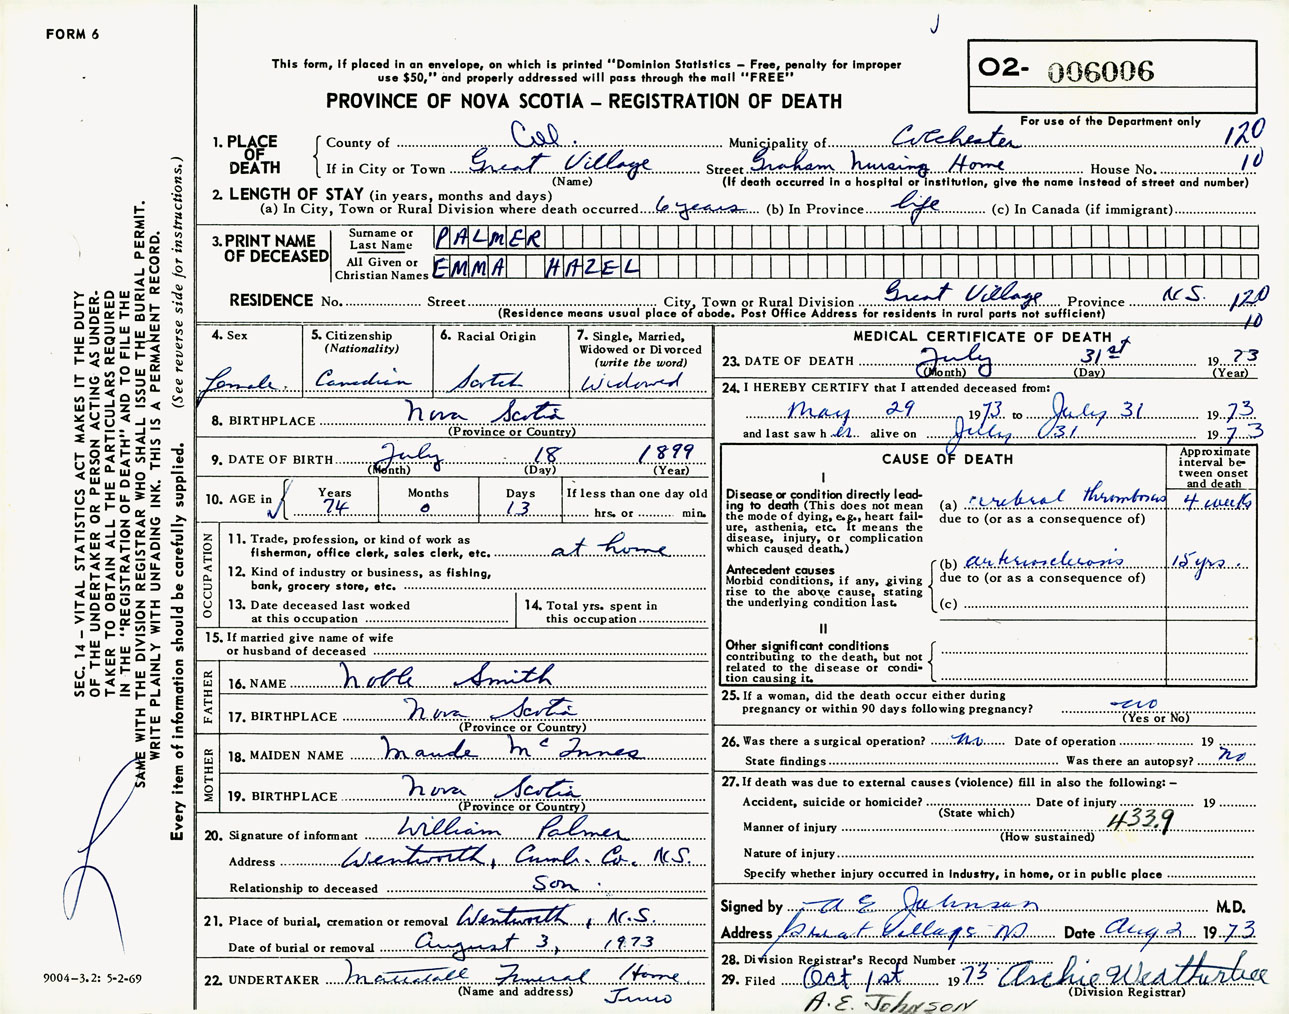 FORM 6
This form, if placed in an envelope, on which is printed "Dominion Statistics – Free, penalty for improper
use $50," and properly addressed will pass through the mail "FREE"
PROVINCE OF NOVA SCOTIA – REGISTRATION OF DEATH
O2- 006006
For use of the Department only
1. PLACE OF DEATH
County of Col. Municipality of Colchester 120
If in City or Town Great Village Street Graham Nursing Home House No. 10
(Name) (If death occurred in a hospital or institution, give the name instead of street and number)
2. LENGTH OF STAY (in years, months and days)
(a) In City, Town or Rural Division where death occurred 6 years (b) In Province life (c) In Canada (if immigrant)
3. PRINT NAME OF DECEASED
Surname or Last Name PALMER
All Given or Christian Names EMMA HAZEL
RESIDENCE No. Street City, Town or Rural Division Great Village Province N.S. 120
(Residence means usual place of abode. Post Office Address for residents in rural parts not sufficient) 10
4. Sex
female.
5. Citizenship
(Nationality)
Canadian
6. Racial Origin
Scotch
7. Single, Married,
Widowed or Divorced
(write the word)
Widowed
8. BIRTHPLACE Nova Scotia
(Province or Country)
9. DATE OF BIRTH July 18 1899
(Month) (Day) (Year)
10. AGE in
Years 74
Months 0
Days 13
If less than one day old
hrs. or min.
OCCUPATION
11. Trade, profession, or kind of work as
fisherman, office clerk, sales clerk, etc. at home
12. Kind of industry or business, as fishing,
bank, grocery store, etc.
13. Date deceased last worked
at this occupation
14. Total yrs. spent in
this occupation
15. If married give name of wife
or husband of deceased
FATHER
16. NAME Noble Smith
17. BIRTHPLACE Nova Scotia
(Province or Country)
MOTHER
18. MAIDEN NAME Maude McInnes
19. BIRTHPLACE Nova Scotia
(Province or Country)
20. Signature of informant William Palmer
Address Wentworth, Cumb. Co. N.S.
Relationship to deceased Son.
21. Place of burial, cremation or removal Wentworth, N.S.
Date of burial or removal August 3, 1973
22. UNDERTAKER Mattatall Funeral Home
(Name and address) Truro
MEDICAL CERTIFICATE OF DEATH
23. DATE OF DEATH July 31st 1973
(Month) (Day) (Year)
24. I HEREBY CERTIFY that I attended deceased from:
May 29 1973 to July 31 1973
and last saw her alive on July 31 1973
CAUSE OF DEATH
Approximate
interval be-
tween onset
and death
I
Disease or condition directly lead-
ing to death (This does not mean
the mode of dying, e.g., heart fail-
ure, asthenia, etc. It means the
disease, injury, or complication
which caused death.)
(a) cerebral thrombosis 4 weeks
due to (or as a consequence of)
Antecedent causes
Morbid conditions, if any, giving
rise to the above cause, stating
the underlying condition last.
(b) arteriosclerosis 15 yrs.
due to (or as a consequence of)
(c)
II
Other significant conditions
contributing to the death, but not
related to the disease or condi-
tion causing it.
25. If a woman, did the death occur either during
pregnancy or within 90 days following pregnancy? no
(Yes or No)
26. Was there a surgical operation? no Date of operation 19
State findings Was there an autopsy? no
27. If death was due to external causes (violence) fill in also the following: –
Accident, suicide or homicide? Date of injury 19
(State which)
Manner of injury 433.9
(How sustained)
Nature of injury
Specify whether injury occurred in industry, in home, or in public place
Signed by A E Johnson M.D.
Address Great Village NS Date Aug 2 1973
28. Division Registrar's Record Number
29. Filed Oct 1st 1973 Archie Weatherbee
(Division Registrar)
A.E. JOHNSON
SEC. 14 – VITAL STATISTICS ACT MAKES IT THE DUTY
OF THE UNDERTAKER OR PERSON ACTING AS UNDER-
TAKER TO OBTAIN ALL THE PARTICULARS REQUIRED
IN THE "REGISTRATION OF DEATH" AND TO FILE THE
SAME WITH THE DIVISION REGISTRAR WHO SHALL ISSUE THE BURIAL PERMIT.
WRITE PLAINLY WITH UNFADING INK. THIS IS A PERMANENT RECORD.
Every item of information should be carefully supplied. (See reverse side for instructions.)
9004–3.2: 5-2-69